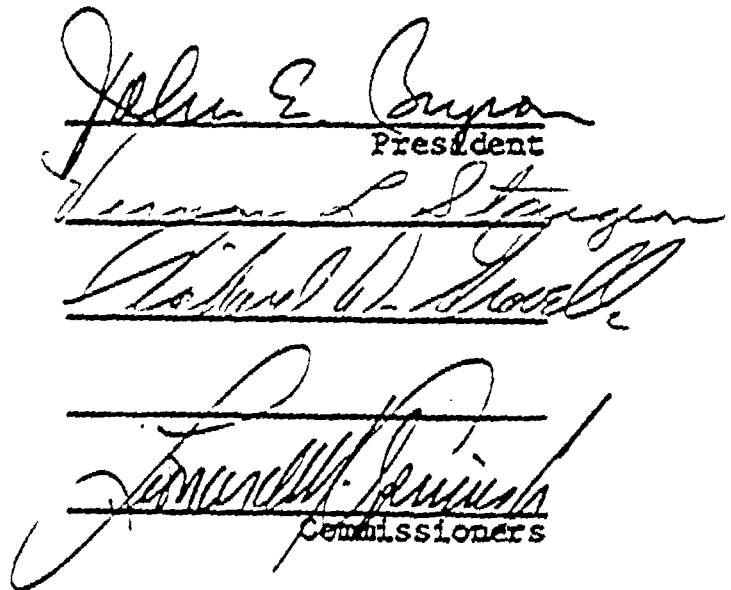 John E. Bryson
President
Vernon L. Sturgeon
Richard D. Gravelle
Leonard M. Grimes
Commissioners